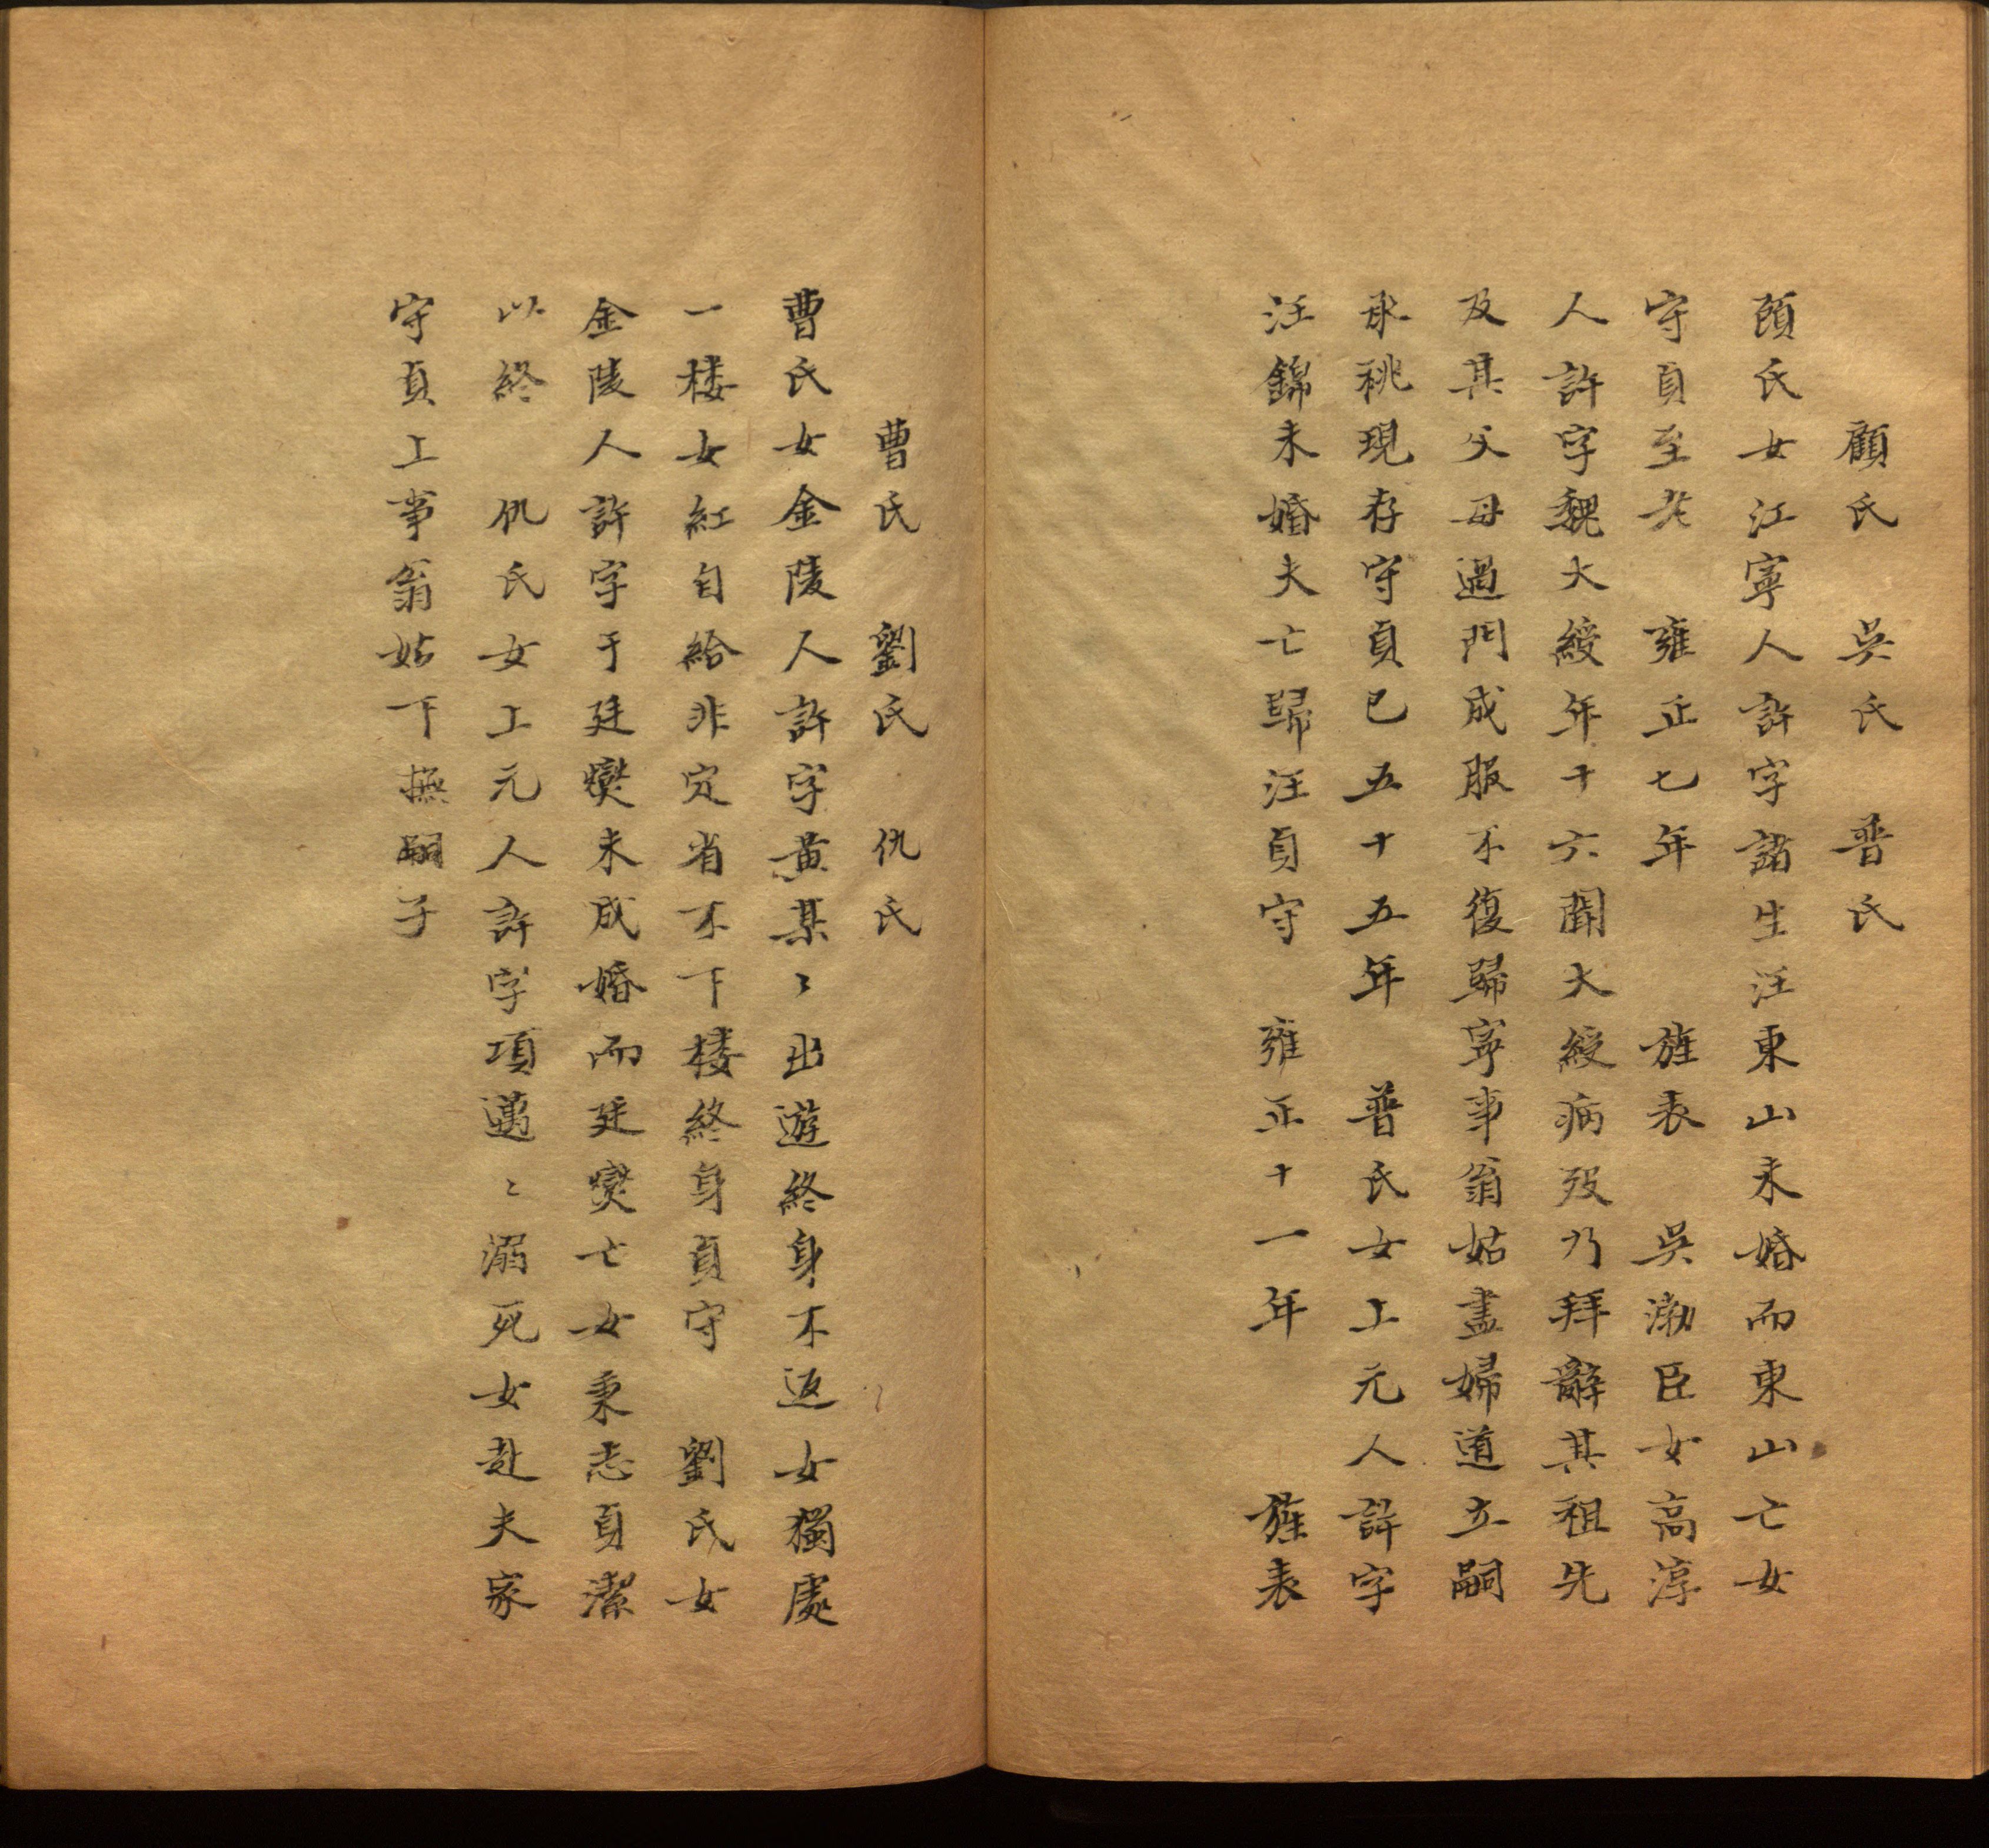 顧氏　吳氏　普氏
顧氏女江寧人許字諸生汪東山未婚而東山亡女
守貞至老　雍正七年　　旌表　吳渤臣女高淳
人許字魏大綬年十六聞大綬病歿乃拜辭其祖先
及其父母過門成服不復歸寧事翁姑盡婦道立嗣
承祧現存守貞已五十五年　普氏女上元人許字
汪錦未婚夫亡歸汪貞守　雍正十一年　　旌表
曹氏　劉氏　仇氏
曹氏女金陵人許字黃某〻出遊終身不返女獨處
一楼女紅自給非定省不下楼終身貞守　劉氏女
金陵人許字于廷爕未成婚而廷爕亡女秉志貞潔
以終　仇氏女上元人許字項邁〻溺死女赴夫家
守貞上事翁姑下撫嗣子